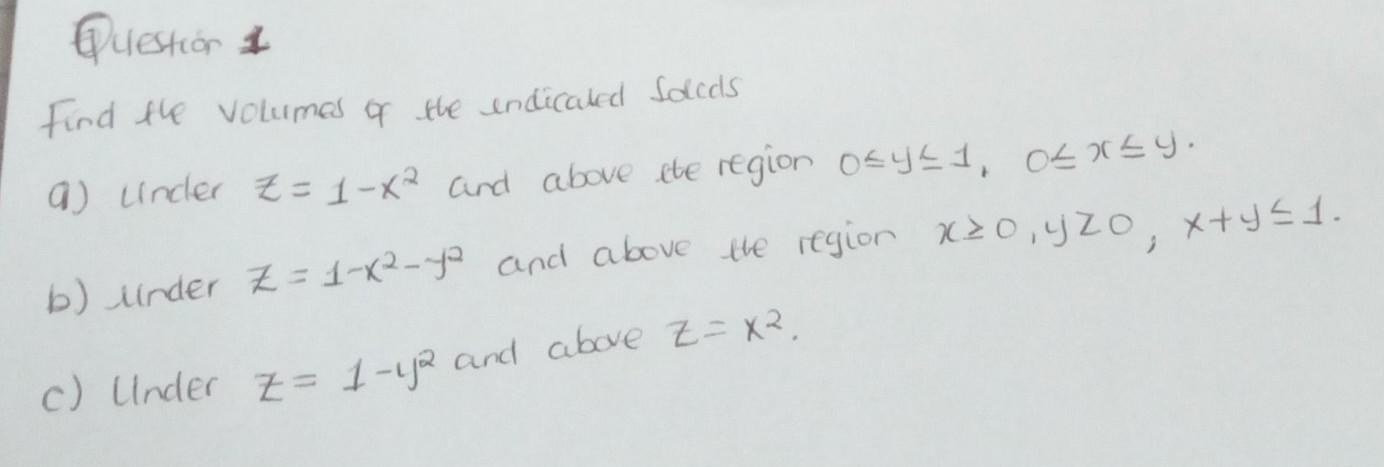 Question 1
Find the volumes of the indicated Solids
a) Under z = 1-x² and above the region 0≤y≤1, 0≤x≤y.
b) Under z = 1-x²-y² and above the region x≥0, y≥0, x+y≤1.
c) Under z = 1-y² and above z = x².